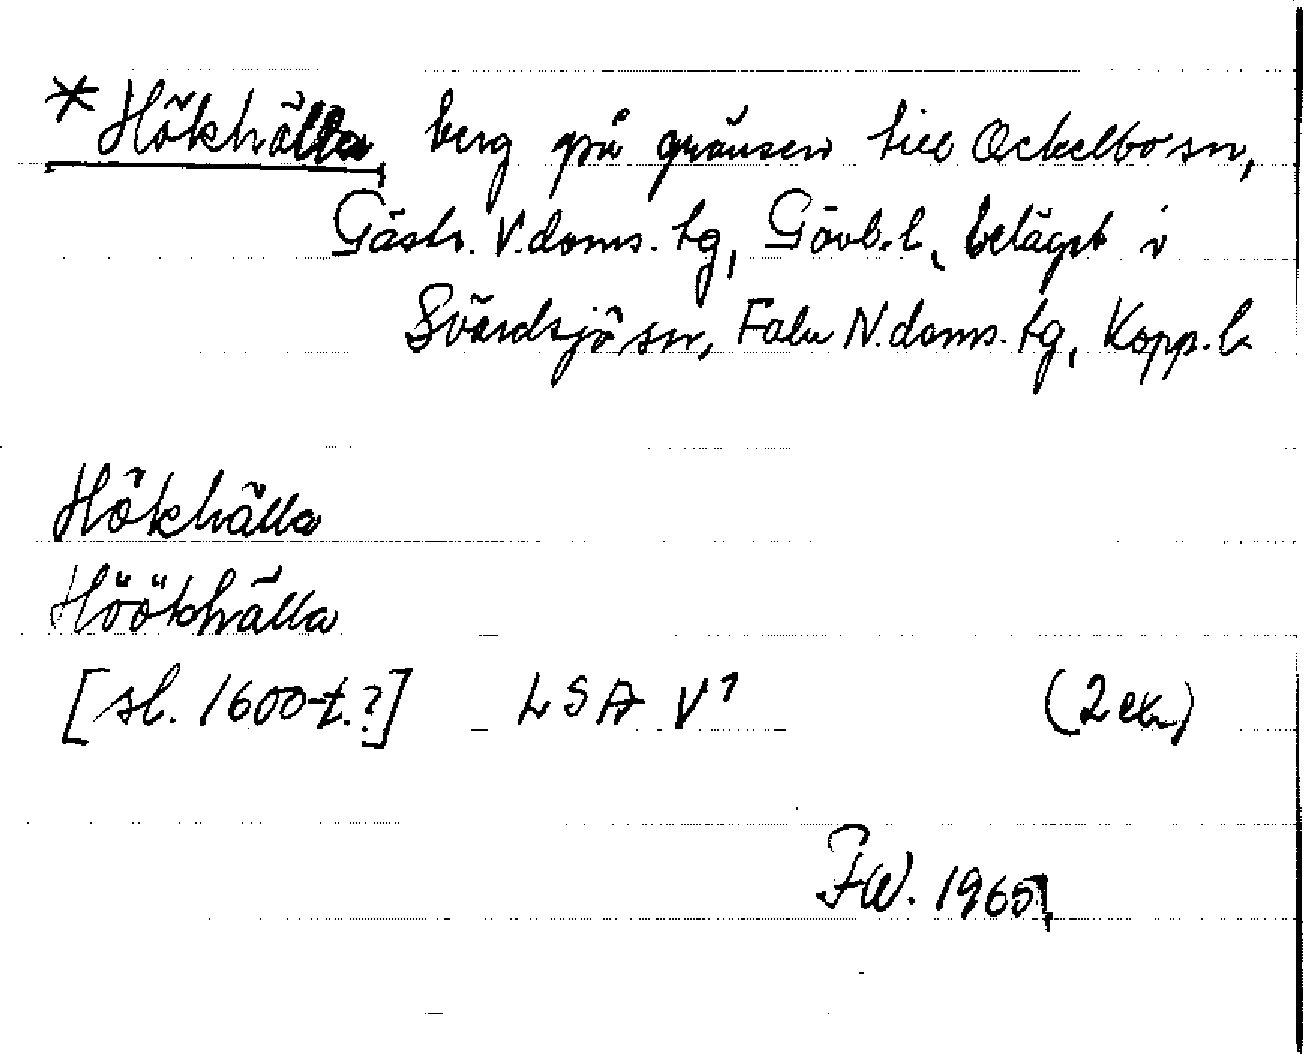 *Hökhälla, berg på gränsen till Ockelbo sn,
Gästr. V. doms. tg, Gävleb. l., beläget i
Svärdsjö sn, Falu N. doms. tg, Kopp. l.
Hökhälla
Höökhälla
[sl. 1600-t.?] LSA V1 (2 ex.)
FW. 1965